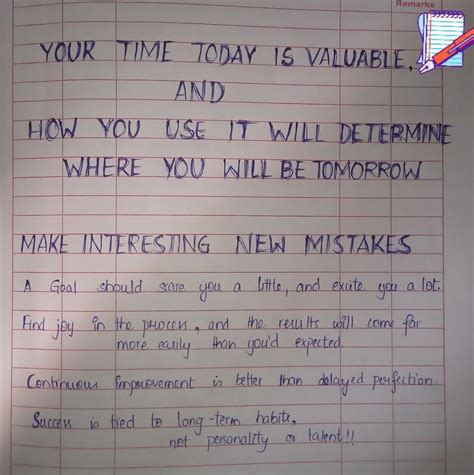 Remarks
YOUR TIME TODAY IS VALUABLE,
AND
HOW YOU USE IT WILL DETERMINE
WHERE YOU WILL BE TOMORROW
MAKE INTERESTING NEW MISTAKES
A Goal should scare you a little, and excite you a lot.
Find joy in the process, and the results will come far
more easily than you'd expected.
Continuous Improvement is better than delayed perfection.
Success is tied to long-term habits,
not personality or talent!!